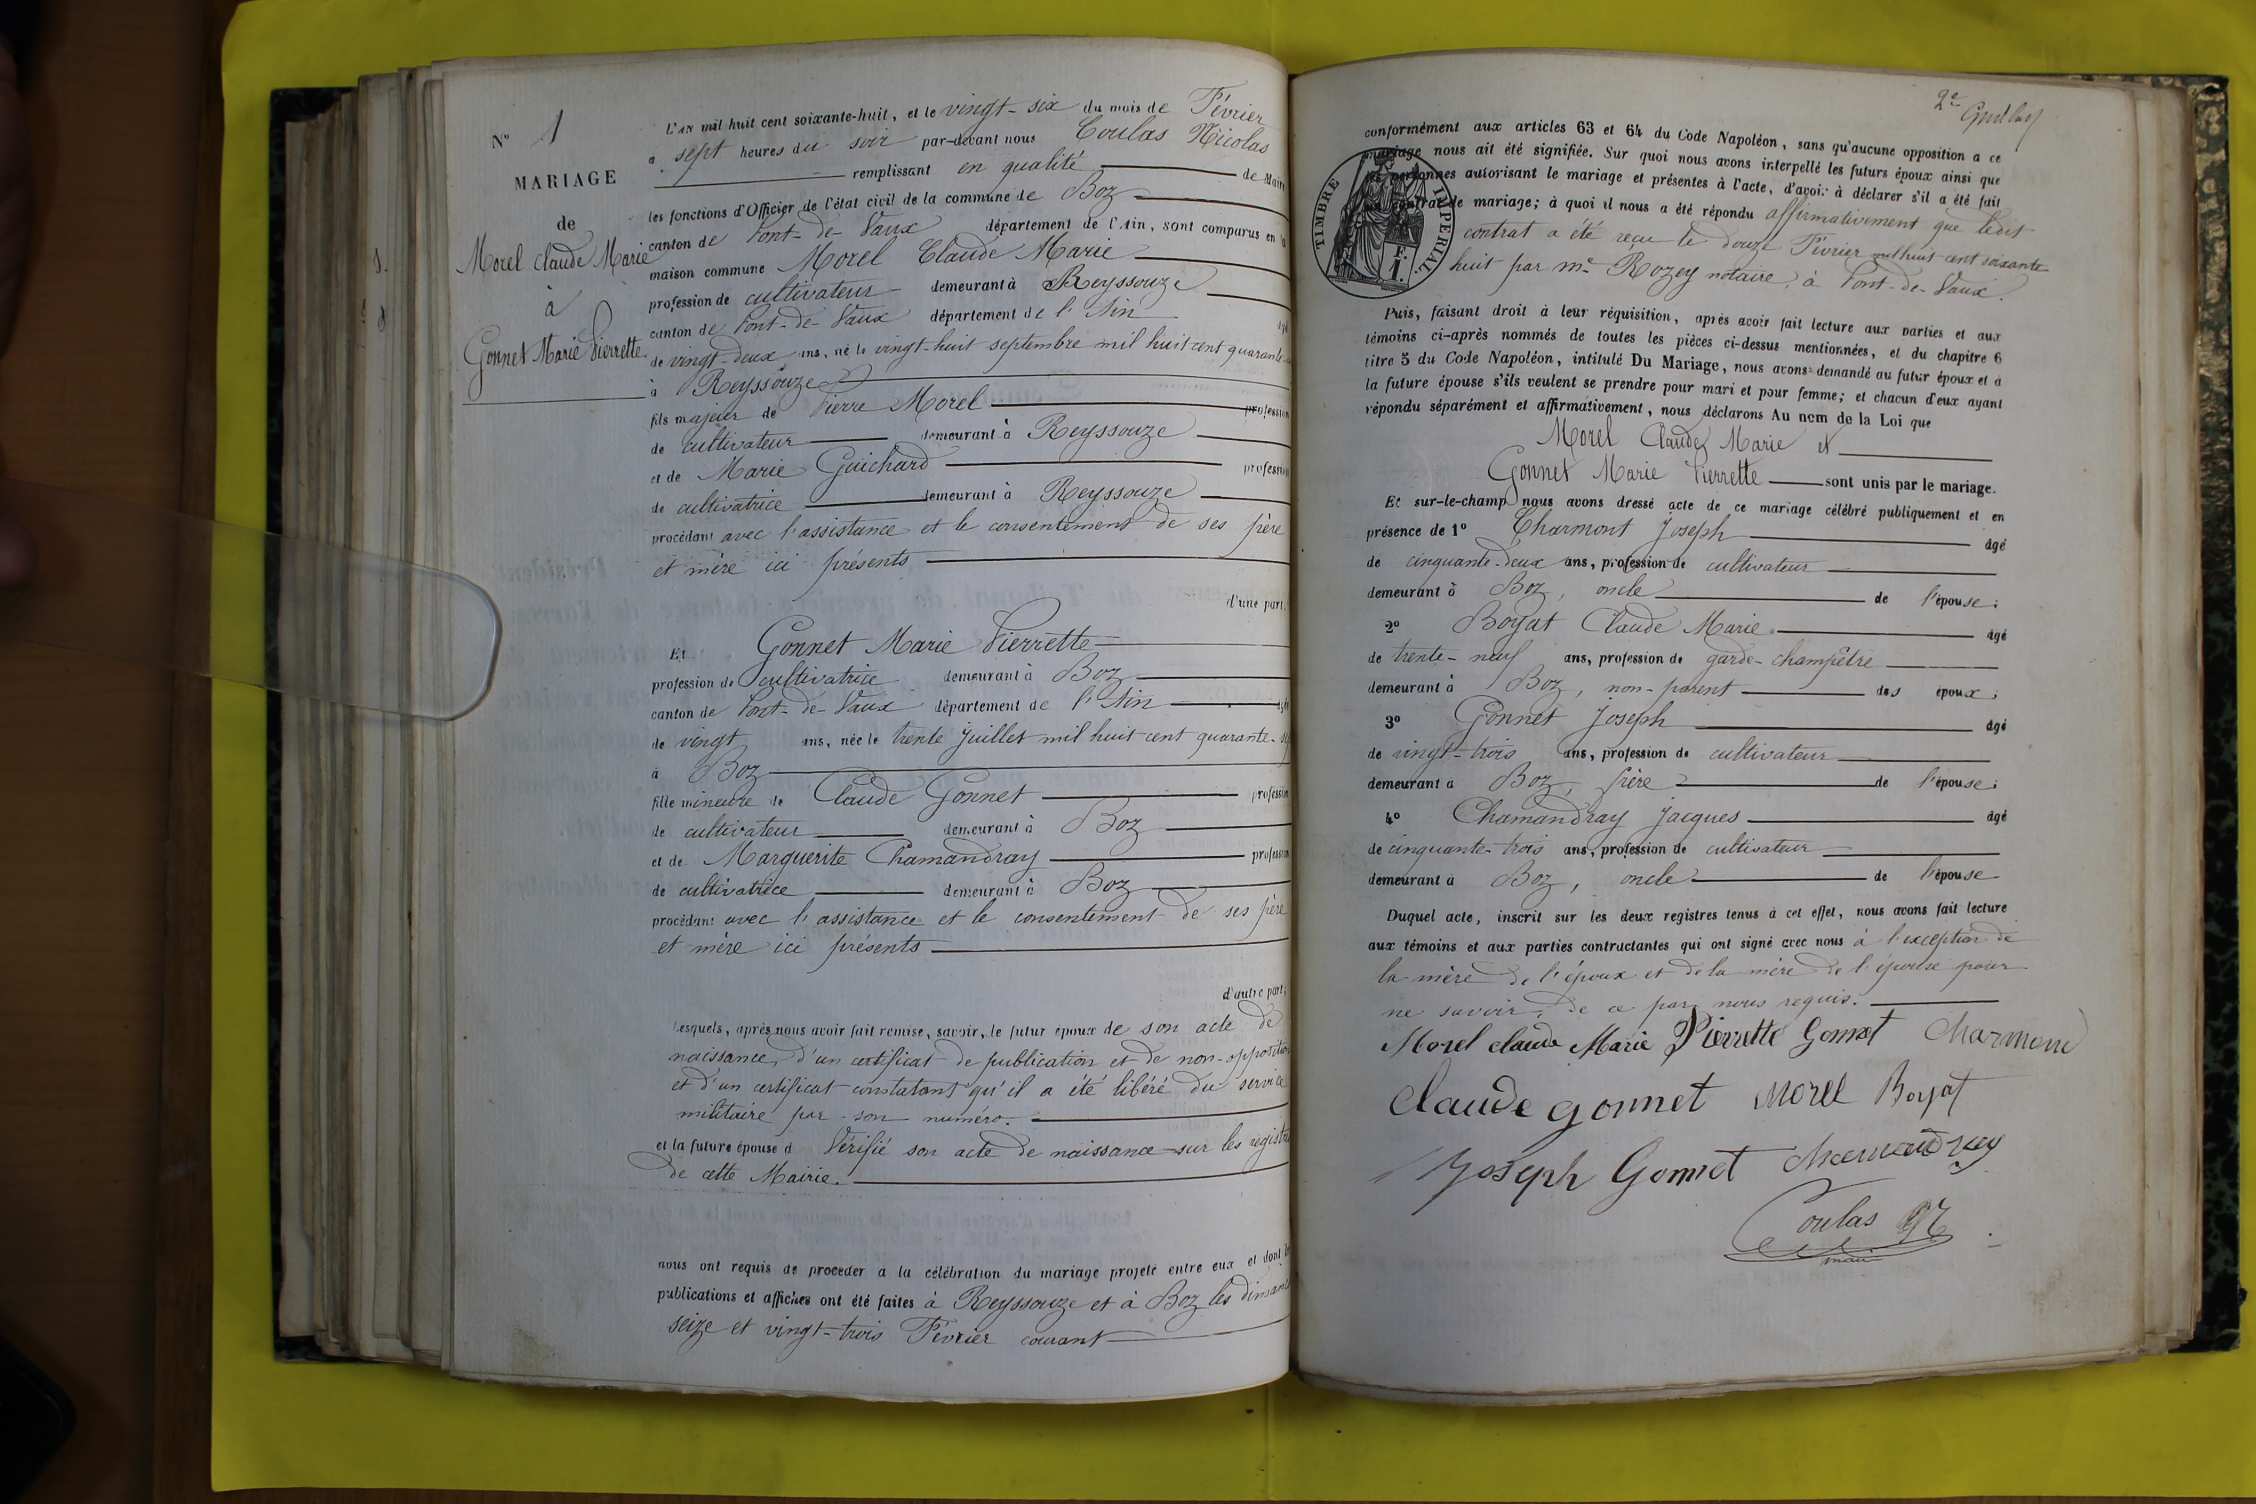 N° 1
MARIAGE
de
Morel Claude Marie
à
Gonnet Marie Pierrette
L'an mil huit cent soixante-huit, et le vingt-six du mois de Février
à sept heures du soir par-devant nous Coulas Nicolas
remplissant en qualité de Maire
les fonctions d'Officier de l'état civil de la commune de Boz
canton de Pont-de-Vaux département de l'Ain, sont comparus en la
maison commune Morel Claude Marie
profession de cultivateur demeurant à Reyssouze
canton de Pont-de-Vaux département de l'Ain âgé
de vingt-deux ans, né le vingt-huit septembre mil huit cent quarante
à Reyssouze
fils majeur de Pierre Morel profession
de cultivateur demeurant à Reyssouze
et de Marie Guichard profession
de cultivatrice demeurant à Reyssouze
procédant avec l'assistance et le consentement de ses père
et mère ici présents
d'une part,
Et Gonnet Marie Pierrette
profession de cultivatrice demeurant à Boz
canton de Pont-de-Vaux département de l'Ain âgée
de vingt ans, née le trente Juillet mil huit cent quarante-sept
à Boz
fille mineure de Claude Gonnet profession
de cultivateur demeurant à Boz
et de Marguerite Chamandray profession
de cultivatrice demeurant à Boz
procédant avec l'assistance et le consentement de ses père
et mère ici présents
d'autre part;
Lesquels, après nous avoir fait remise, savoir, le futur époux de son acte de
naissance, d'un certificat de publication et de non-opposition
et d'un certificat constatant qu'il a été libéré du service
militaire par son numéro.
et la future épouse d Vérifié son acte de naissance sur les registres
de cette Mairie.
nous ont requis de procéder à la célébration du mariage projeté entre eux et dont les
publications et affiches ont été faites à Reyssouze et à Boz les dimanches
seize et vingt-trois Février courant
2e
conformément aux articles 63 et 64 du Code Napoléon, sans qu'aucune opposition a ce
mariage nous ait été signifiée. Sur quoi nous avons interpellé les futurs époux ainsi que
les personnes autorisant le mariage et présentes à l'acte, d'avoir à déclarer s'il a été fait
un contrat de mariage; à quoi il nous a été répondu affirmativement que ledit
contrat a été reçu le douze Février mil huit cent soixante
huit par me Rozey notaire, à Pont-de-Vaux.
TIMBRE IMPERIAL
F.
1.
Puis, faisant droit à leur réquisition, après avoir fait lecture aux parties et aux
témoins ci-après nommés de toutes les pièces ci-dessus mentionnées, et du chapitre 6
titre 5 du Code Napoléon, intitulé Du Mariage, nous avons demandé au futur époux et à
la future épouse s'ils veulent se prendre pour mari et pour femme; et chacun d'eux ayant
répondu séparément et affirmativement, nous déclarons Au nom de la Loi que
Morel Claude Marie et
Gonnet Marie Pierrette sont unis par le mariage.
Et sur-le-champ nous avons dressé acte de ce mariage célébré publiquement et en
présence de 1° Charmont Joseph âgé
de cinquante-deux ans, profession de cultivateur
demeurant à Boz, oncle de l'épouse;
2° Boyat Claude Marie âgé
de trente-neuf ans, profession de garde-champêtre
demeurant à Boz, non-parent des époux;
3° Gonnet Joseph âgé
de vingt-trois ans, profession de cultivateur
demeurant à Boz, frère de l'épouse;
4° Chamandray Jacques âgé
de cinquante-trois ans, profession de cultivateur
demeurant à Boz, oncle de l'épouse
Duquel acte, inscrit sur les deux registres tenus à cet effet, nous avons fait lecture
aux témoins et aux parties contractantes qui ont signé avec nous à l'exception de
la mère de l'époux et de la mère de l'épouse pour
ne savoir, de ce par nous requis.
Morel claude Marie Pierrette Gonnet Charmont
Claude gonnet Morel Boyat
Joseph Gonnet Chamandray
Coulas
maire